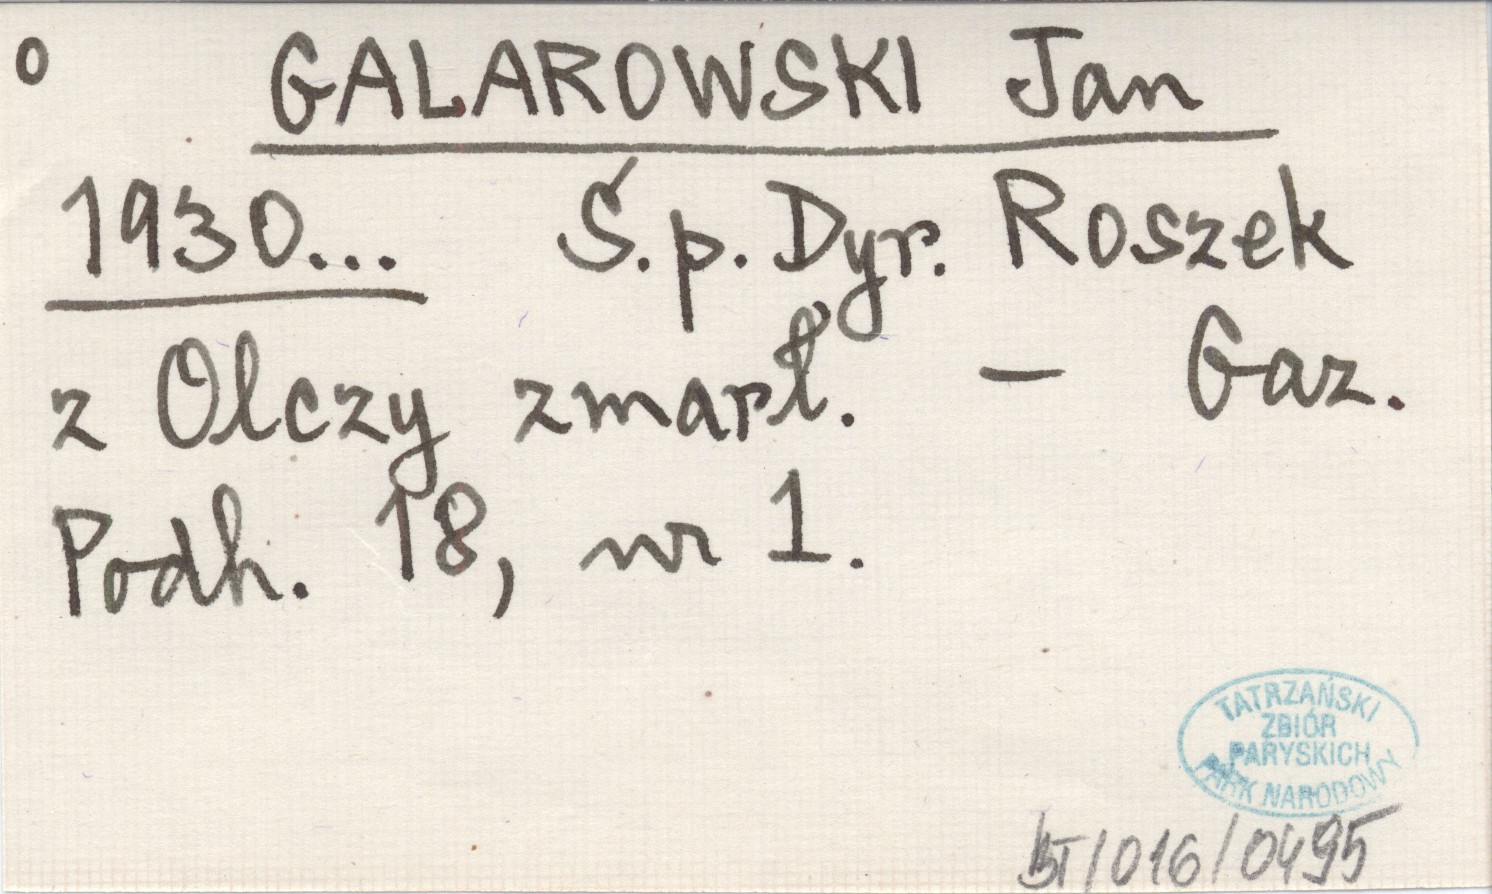 o GALAROWSKI Jan
1930... Ś.p. Dyr. Roszek
z Olczy zmarł. — Gaz.
Podh. 18, nr 1.
TATRZAŃSKI
ZBIÓR
PARYSKICH
PARK NARODOWY
BT/016/0495